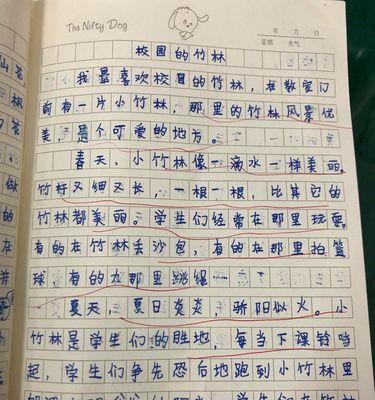 The Nifty Dog
年 月 日
星期 天气
校园的竹林
我最喜欢校园的竹林,在教室门
前有一片小竹林,那里的竹林风景优
美,是个可爱的地方。
春天,小竹林像一滴水一样美丽。
竹杆又细又长,一根一根,比其它的
竹林都美丽。学生们经常在那里玩耍。
有的在竹林丢沙包,有的在那里拍篮
球,有的在那里跳绳
夏天,夏日炎炎,骄阳似火。小
竹林是学生们的胜地,每当下课铃响
起,学生们争先恐后地跑到小竹林里